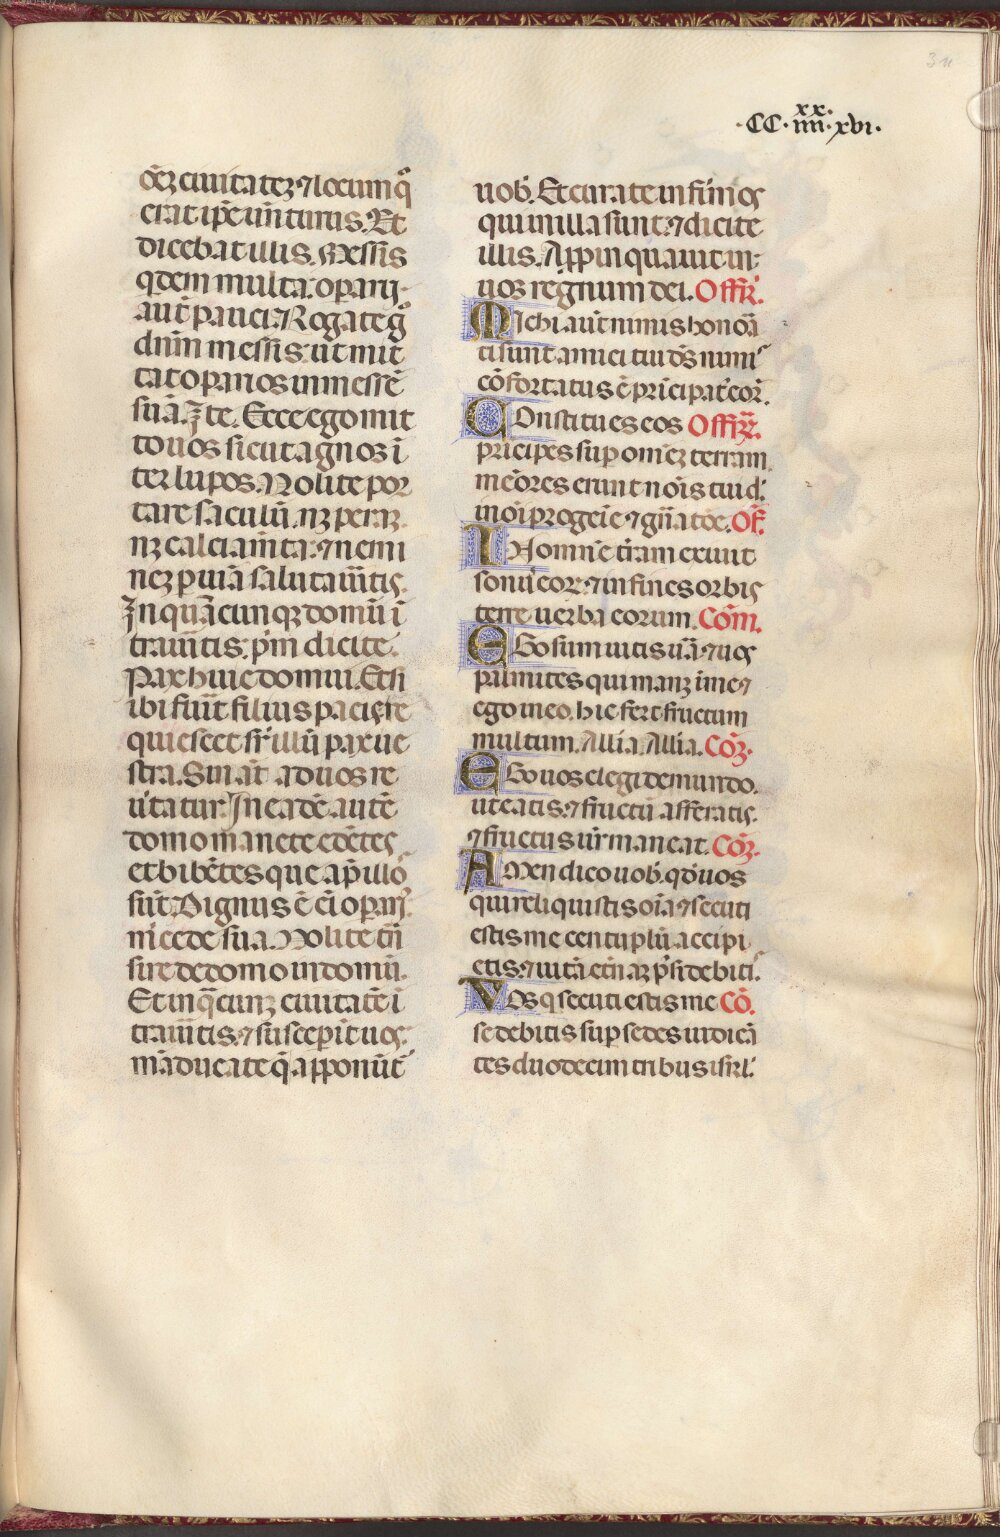 311
xx.
.CC.iiii.xvi.
oēz ciuitatez ⁊ locum qͦ
erat ip̄e uenturus. Et
dicebat illis. Messis
qdem multa: operarij
aut̄ pauci. Rogate gͦ
dn̄m messis: ut mit
tat oparios in messē
suā. Ite. Ecce ego mit
to uos sicut agnos ī
ter lupos. Nolite por
tare saculū. nz peraz.
nz calciam̄ta: ⁊ nemi
nez p uiā salutaūitis.
In quācunqz domū ī
traūitis: pͥm dicite.
Pax huic domui. Et si
ibi fuīt filius pacis re
quiescet sr̄ illū pax ue
stra. Sin at̄ ad uos re
ūtatur. In eadē autē
domo manete edētes
et bibētes que ap illoͦ
sūt. Dignus ē ēi opari'
m̄cede sua. Nolite trā
sire de domo in domū.
Et in qācunz ciuitatē ī
traūitis: ⁊ susceperīt uos:
māducate q̄ apponūt̄
uob̄. Et curate infīmos
qui in illa sunt: ⁊ dicite
illis. Appinquauit in
uos regnum dei. Offr̄.
Michi aut̄ nimis honoā
ti sunt amici tui ds̄ nimi
cōfortatus ē pͥncipat' eor̄.
Constitues eos Offr̄.
principes sup om̄ez terram
memores erunt nois tui d'
in oī progeīe ⁊ gn̄atoe. Of̄.
In omnē tr̄am exiuit
sonu' eor̄: ⁊ in fines orbis
terre uerba eorum. Com̄.
Ego sum uitis uā: ⁊ uos
palmites qui manz ī me ⁊
ego in eo. hic fert fructum
multum. All̄ia. All̄ia. Cōz.
Ego uos elegi de mundo.
ut eatis. ⁊ fructū afferatis.
⁊ fructus ur̄ maneat. Cōz.
Amen dico uob̄. qd uos
qui reliquistis oīa ⁊ secuti
estis me centuplū accipi
etis: ⁊ uitā etn̄az p̄sidebit'.
Vos q secuti estis me Cō.
sedebitis sup sedes iudicā
tes duodecim tribus isrl'.